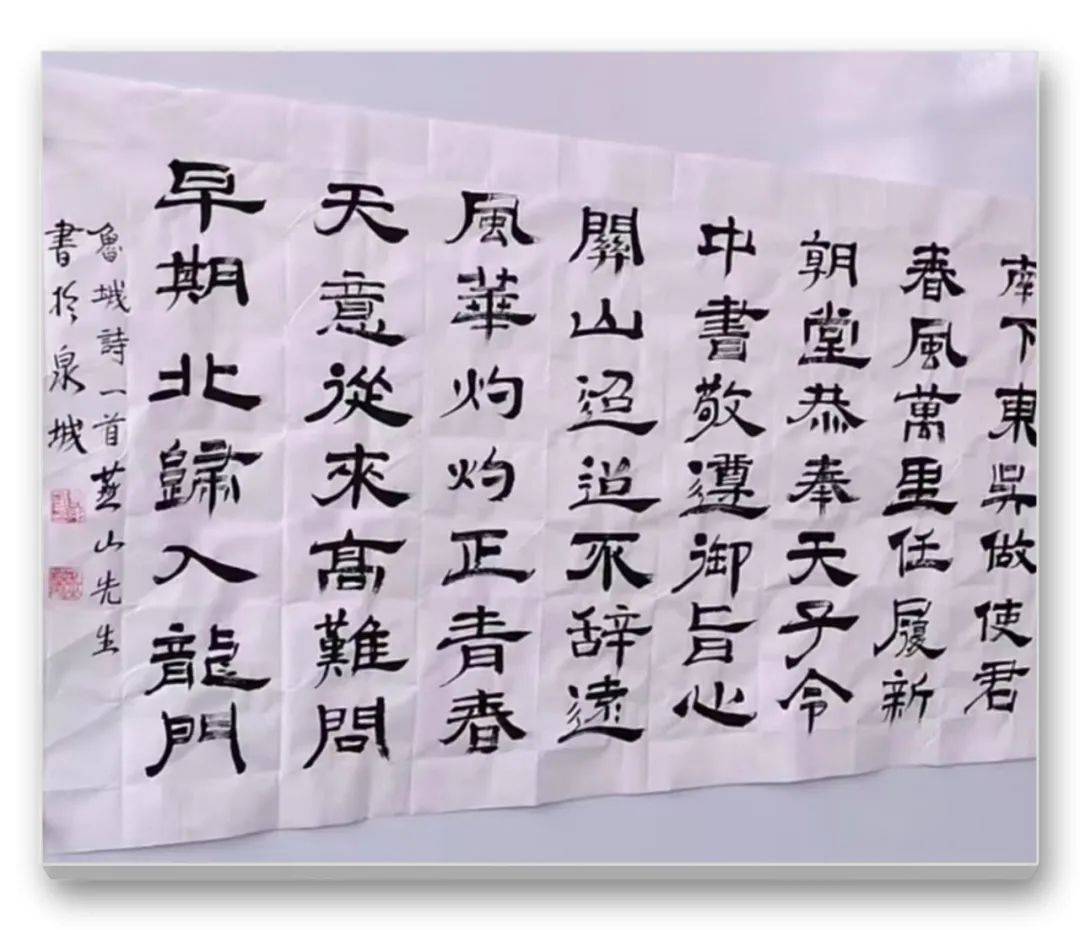 南下東吳做使君
春風萬里任履新
朝堂恭奉天子令
中書敬遵御旨心
關山迢迢不辞遠
風華灼灼正青春
天意從來高難問
早期北歸入龍門
魯城詩一首燕山先生
書於泉城